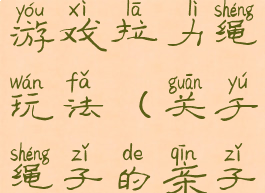 yóu xì lā lì shéng
游戏拉力绳
wán fǎ guān yú
玩法（关于
shéng zǐ de qīn zǐ
绳子的亲子